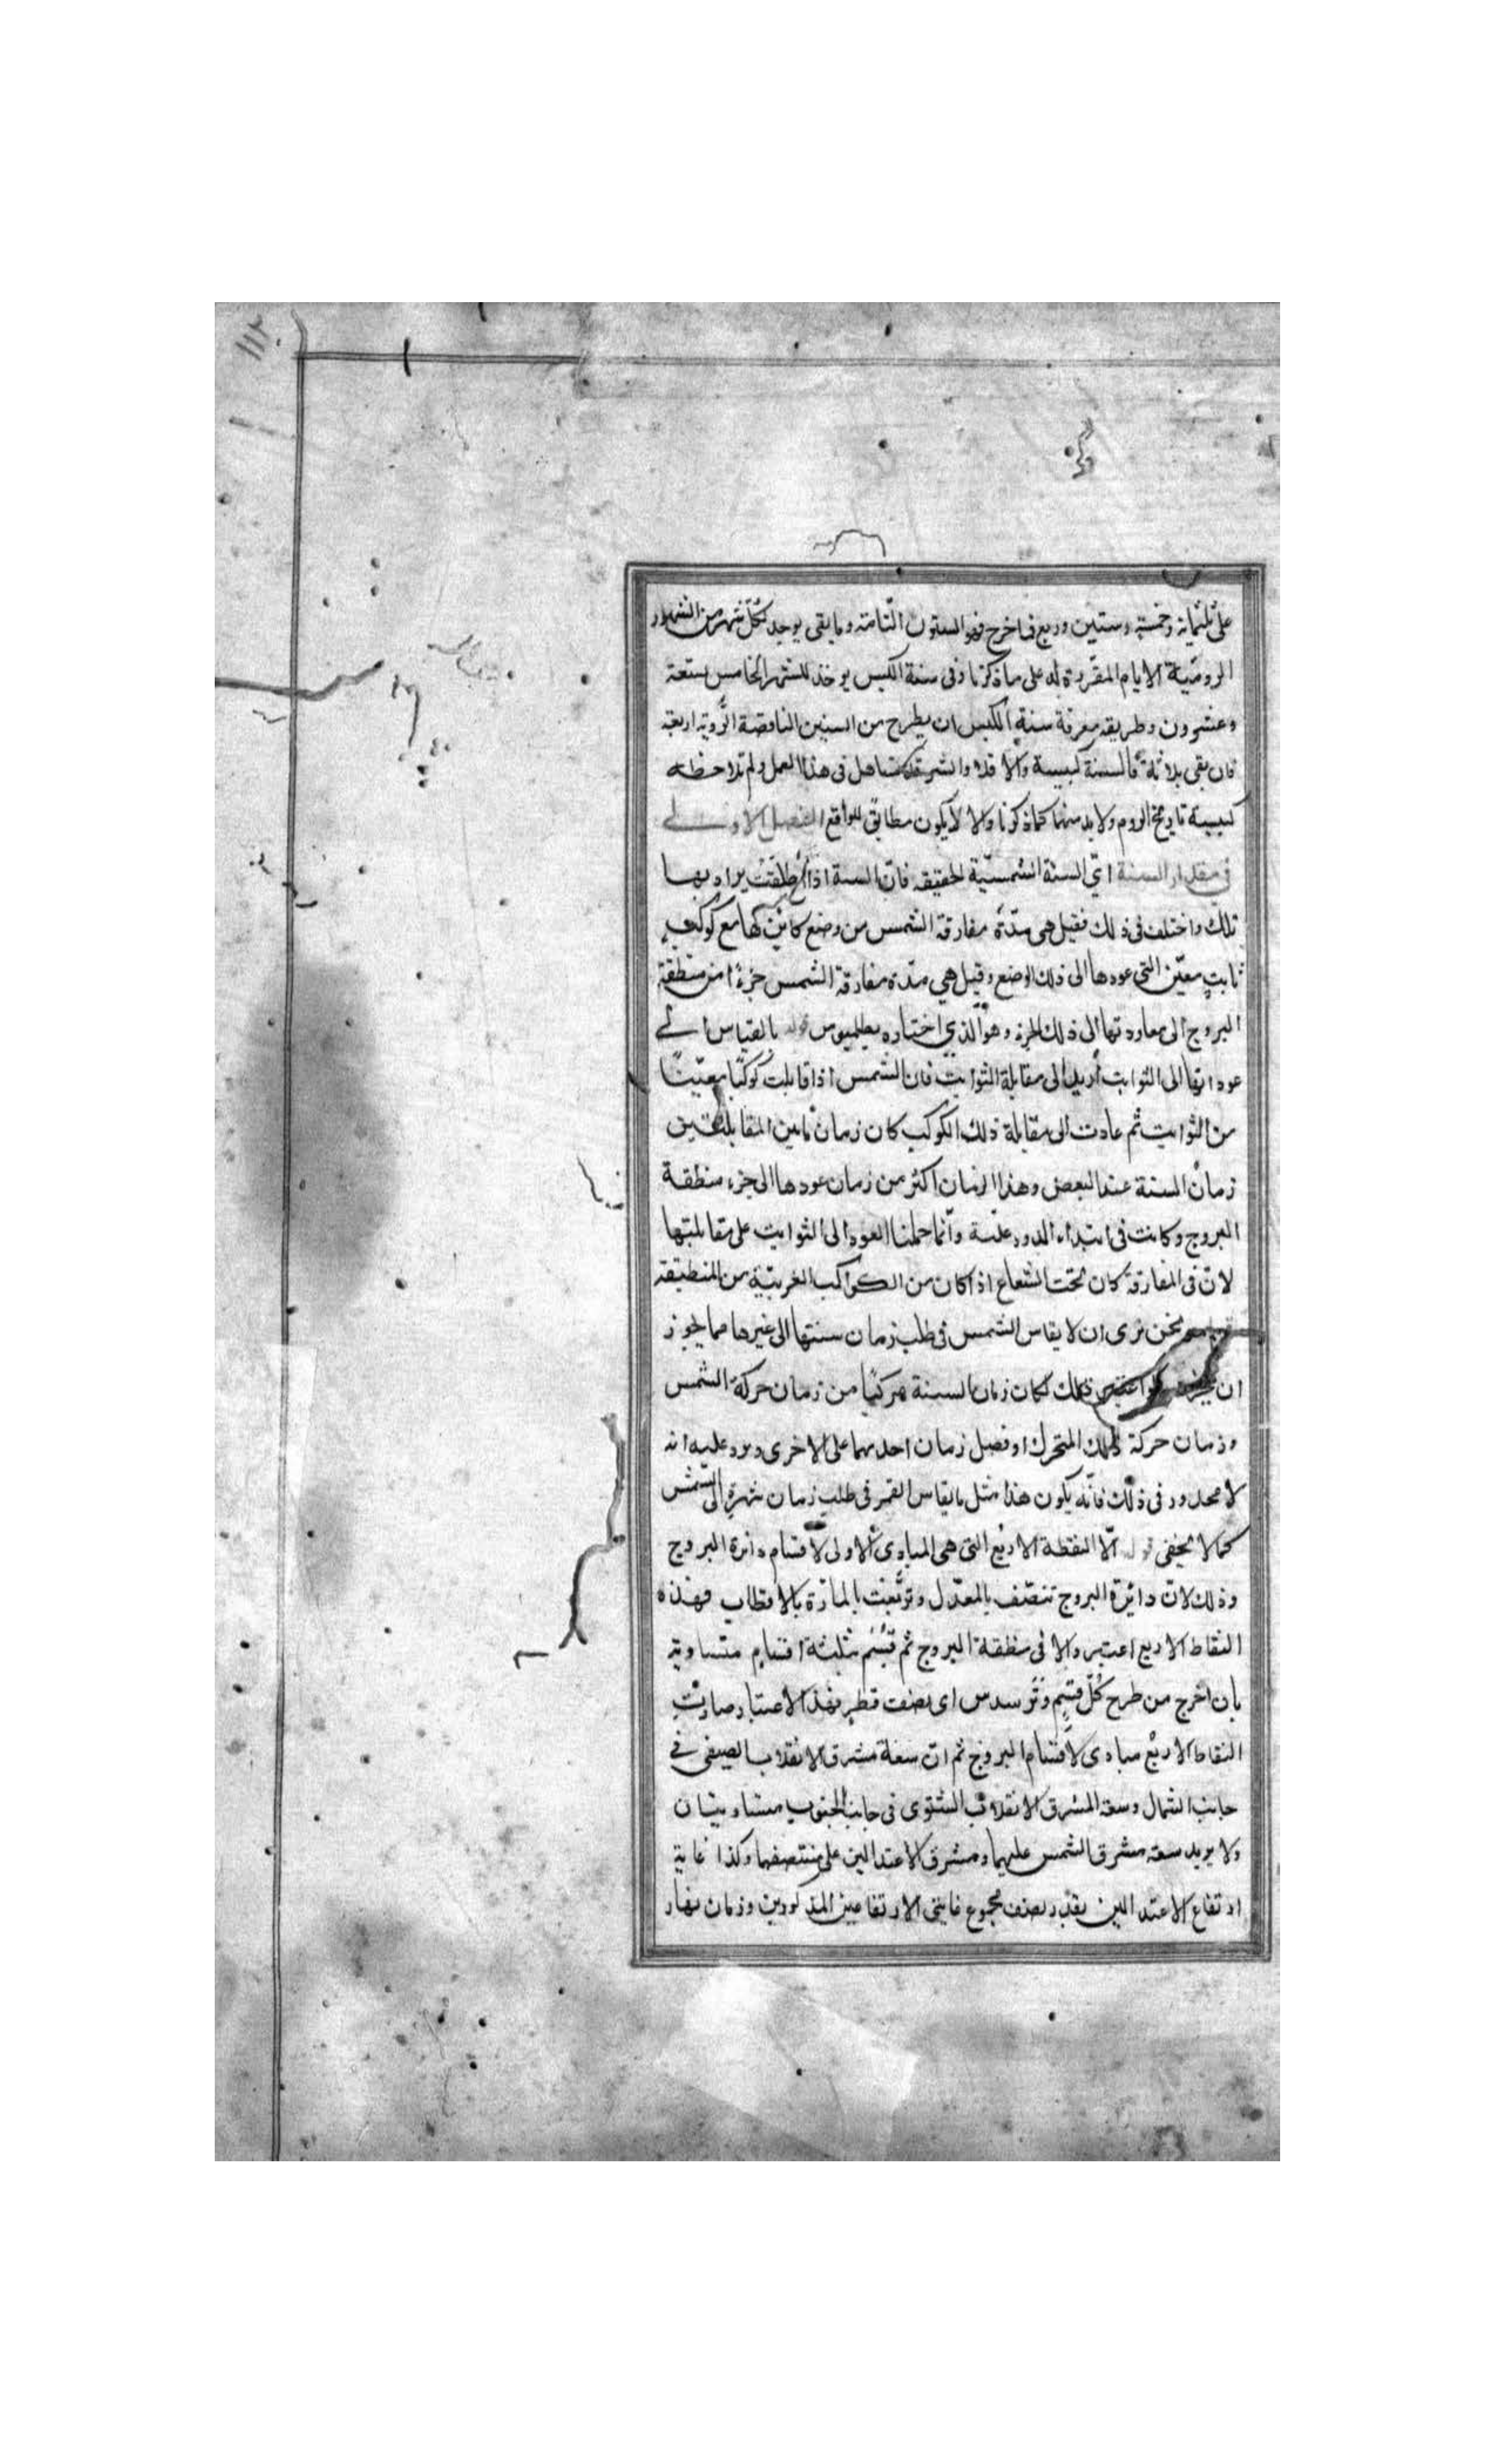 ١١٢
على ثلثمائة وخمسة وستين وربع فما خرج فهو السنون التامة وما يبقى يوجد لكل شهر من الشهور
الرومية الايام المقررة له على ما ذكرنا وفى سنة الكبس يوخذ للشهر الخامس بستعة
وعشرون وطريقه معرفة سنة الكبس ان يطرح من السنين الناقصة الروية اربعة
فان بقى بلاثة فالسنة كبيسة والا فلا والشر قد تساهل فى هذا العمل ولم تلاحظه
كبيسة تاريخ الروم ولابد منهما كما ذكرنا والا لا يكون مطابق للواقع الفصل الاول
فى مقدار السنة اى السنة الشمسية الحقيقه فان السنة اذا اطلقت يراد بها
تلك واختلف فى ذلك فقيل هى مدة مفارقة الشمس من وضع كائن لها مع كوكب
ثابت معين التى عودها الى ذلك الوضع وقيل هى مدة مفارقة الشمس جزءًا من منطقة
البروج الى معاودتها الى ذلك الجزء وهو الذى اختاره بطلميوس قوله بالقياس الى
عوداتها الى الثوابت أريد الى مقابلة الثوابت فان الشمس اذا قابلت كوكبًا معينًا
من الثوابت ثم عادت الى مقابلة ذلك الكوكب كان زمان مابين المقابلتين
زمان السنة عند البعض وهذا الزمان اكثر من زمان عودها الى جزء منطقة
البروج وكانت فى ابتداء الدور علية وانما حملنا العود الى الثوابت على مقابلتها
لان فى المفارقة كان تحت الشعاع اذا كان من الكواكب الغربية من المنطقة
ونحن نرى ان لا يقاس الشمس فى طلب زمان سنتها الى غيرها مما يجوز
ان ذلك لكان زمان السنة مركبًا من زمان حركة الشمس
وزمان حركة ذلك المتحرك او فصل زمان احدهما على الاخرى ويرد عليه انه
لا محدور فى ذلك فانه يكون هذا مثل ما يقاس القمر فى طلب زمان شهرة الى الشمس
كما لا يخفى قوله الا النقطة الاربع التى هى المبادى الاولى لاقسام دائرة البروج
وذلك لان دائرة البروج تنصف بالمعدل وتربعت بالمارة بالاقطاب فهذه
النقاط الاربع اعتبر والا فى منطقة البروج ثم قسم بثلثة اقسام متساوية
بان اخرج من طرح كل قسم وتر سدس اى نصف قطر فهذا الاعتبار صارت
النقاط الاربع مبادى لاقسام البروج ثم ان سعة مشرق الانقلاب الصيفى فى
جانب الشمال وسعة المشرق الانقلاب الشتوى فى جانب الجنوب متساويتان
ولا يريد سعة مشرق الشمس عليهما ومشرق الاعتدالين على منتصفهما وكذا غاية
ارتفاع الاعتدالين بقدر نصف مجموع غايتى الارتفاعين المذكورين وزمان نهار